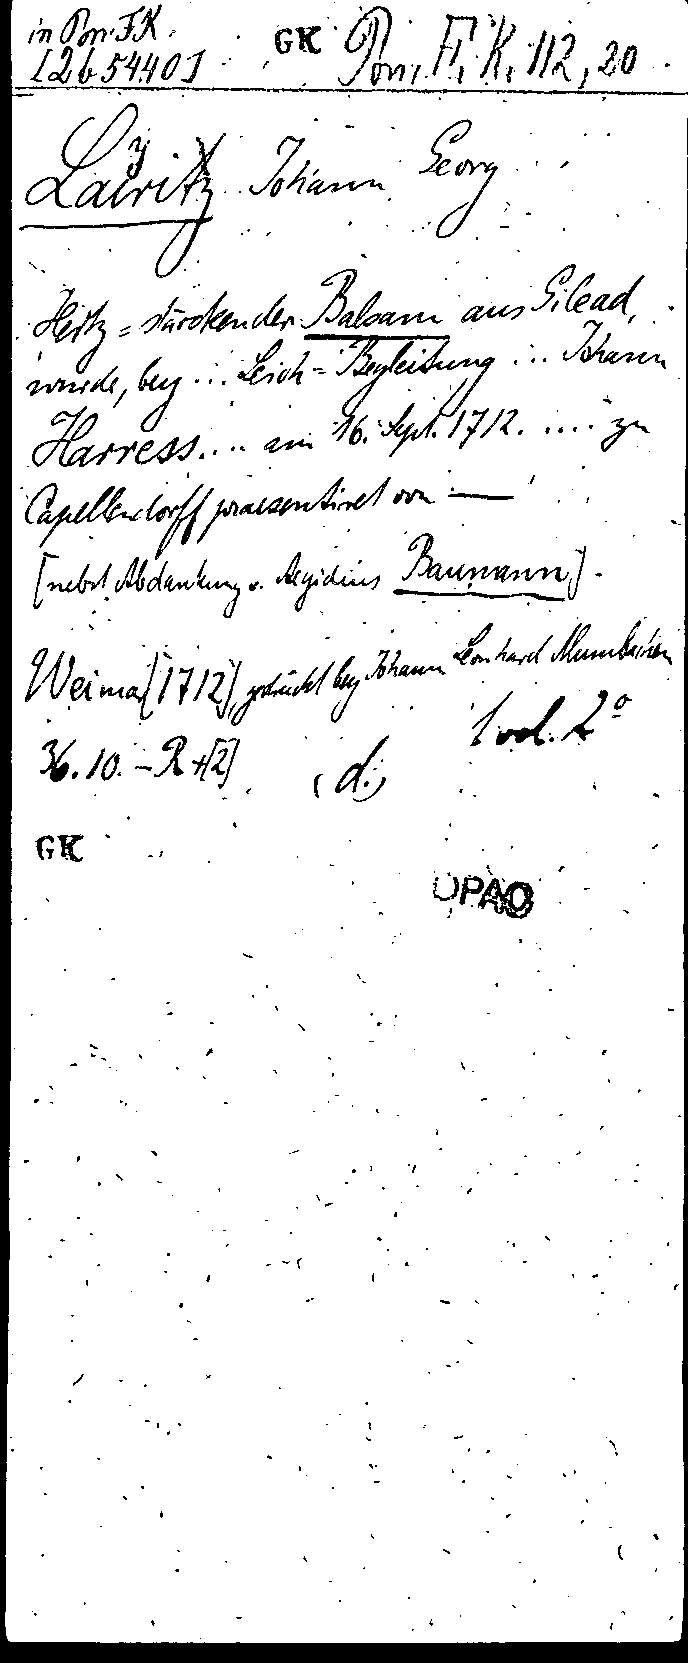 in Pon. F.K. GK Pon. F. K. 112, 20
[2b 5440]
Layritz Johann Georg
Hertz = stärckender Balsam aus Gilead,
wurde, bey ... Leich = Begleitung ... Johann
Harress .... am 16. Sept. 1712. .... zu
Capellendorff praesentiret von —
[nebst Abdankung v. Aegidius Baumann].
Weimar [1712], gedruckt bey Johann Leonhard Mumbachen
36.10. - R + [2] (d.) 1 vol. 2°
GK
OPAC